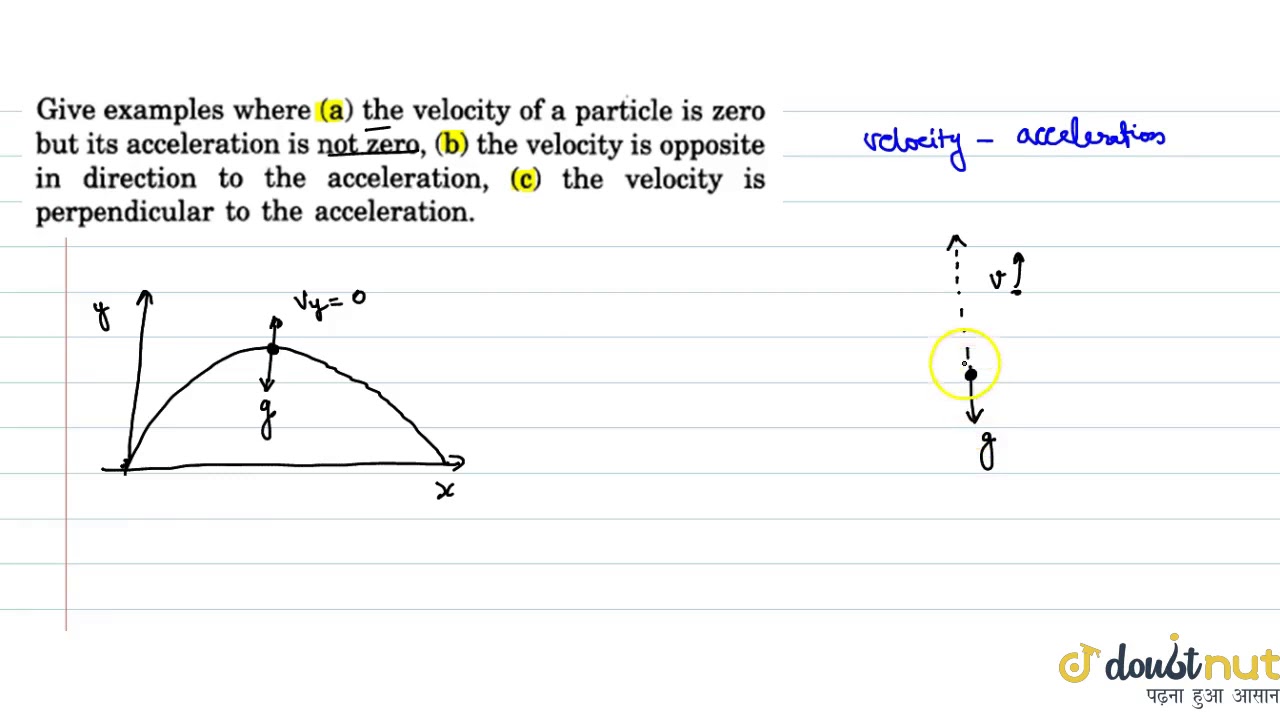 Give examples where (a) the velocity of a particle is zero
but its acceleration is not zero, (b) the velocity is opposite
in direction to the acceleration, (c) the velocity is
perpendicular to the acceleration.
velocity - acceleration
y
Vy = 0
g
x
v
g
doubtnut
पढ़ना हुआ आसान